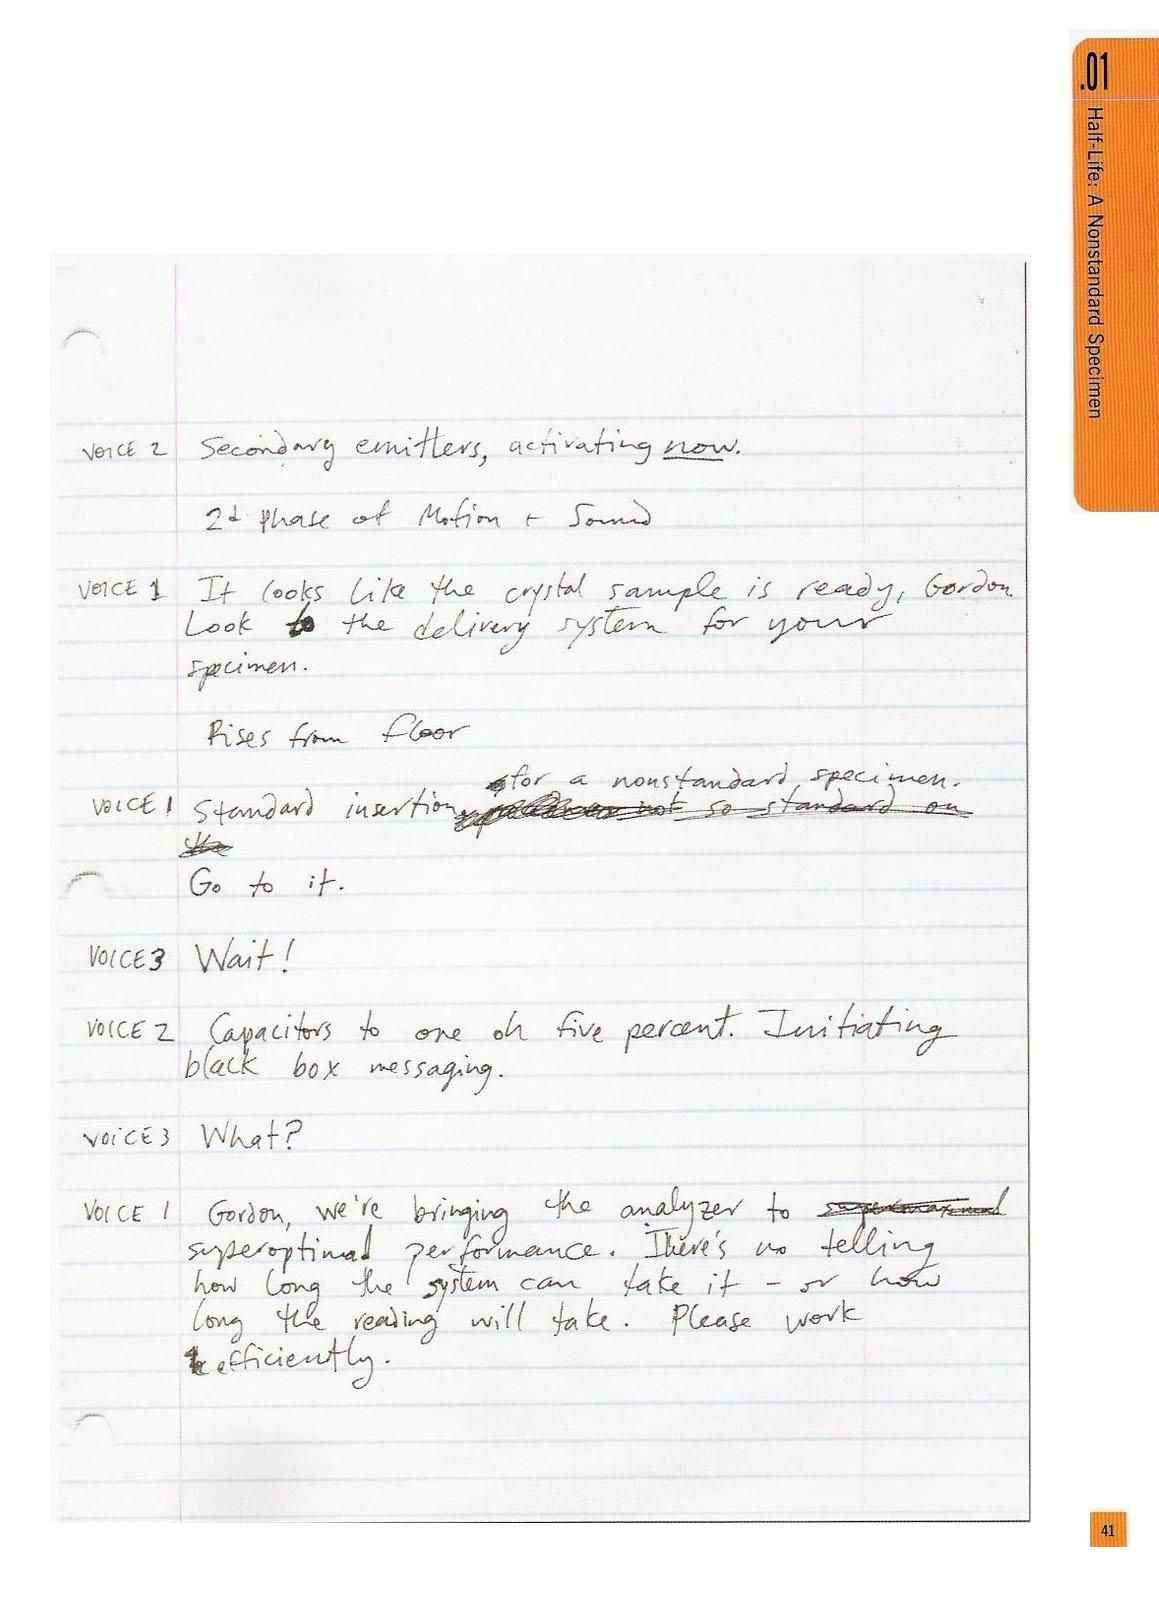 .01
Half-Life: A Nonstandard Specimen
VOICE 2 Secondary emitters, activating now.
2d phase of Motion + Sound
VOICE 1 It looks like the crystal sample is ready, Gordon.
Look to the delivery system for your
specimen.
Rises from floor
for a nonstandard specimen.
VOICE 1 Standard insertion not so standard on
the
Go to it.
VOICE 3 Wait!
VOICE 2 Capacitors to one oh five percent. Initiating
black box messaging.
VOICE 3 What?
VOICE 1 Gordon, we're bringing the analyzer to supermaximal
superoptimal performance. There's no telling
how long the system can take it - or how
long the reading will take. Please work
efficiently.
41